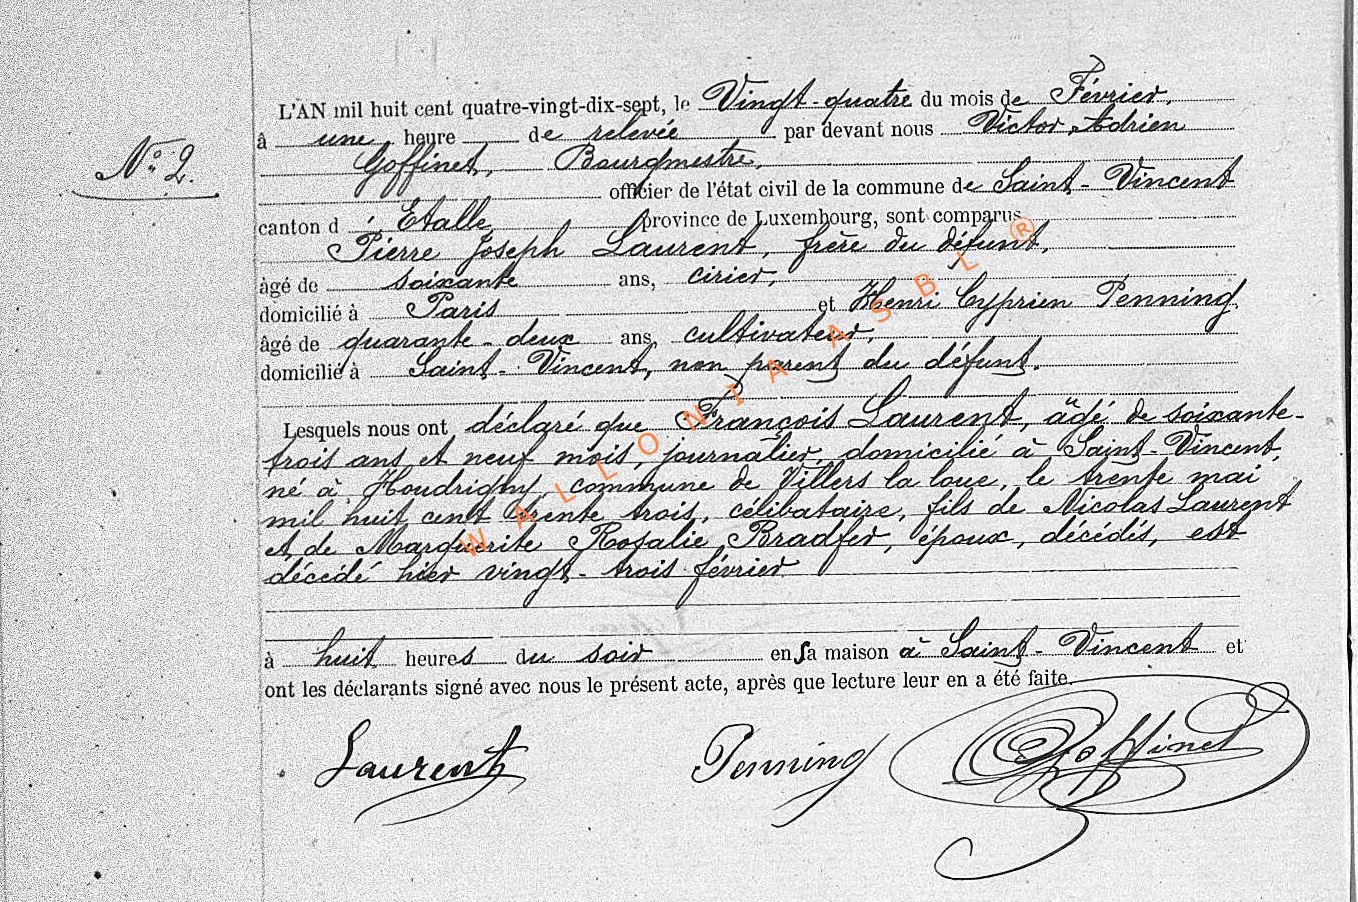 L'AN mil huit cent quatre-vingt-dix-sept, le Vingt-quatre du mois de Février,
N° 2.
à une heure de relevée par devant nous Victor Adrien
Goffinet, Bourgmestre,
officier de l'état civil de la commune de Saint-Vincent
canton d'Etalle, province de Luxembourg, sont comparus
Pierre Joseph Laurent, frère du défunt,
âgé de soixante ans, cirier,
domicilié à Paris et Henri Cyprien Penning,
âgé de quarante-deux ans, cultivateur,
domicilié à Saint-Vincent, non parent du défunt.
Lesquels nous ont déclaré que François Laurent, âgé de soixante-
trois ans et neuf mois, journalier, domicilié à Saint-Vincent,
né à Houdrigny, commune de Villers la loue, le trente mai
mil huit cent trente trois, célibataire, fils de Nicolas Laurent
et de Marguerite Rosalie Bradfer, époux, décédés, est
décédé hier vingt-trois février
à huit heures du soir en sa maison à Saint-Vincent et
ont les déclarants signé avec nous le présent acte, après que lecture leur en a été faite.
Laurent Penning Goffinet
WALLONIA ASBL ®